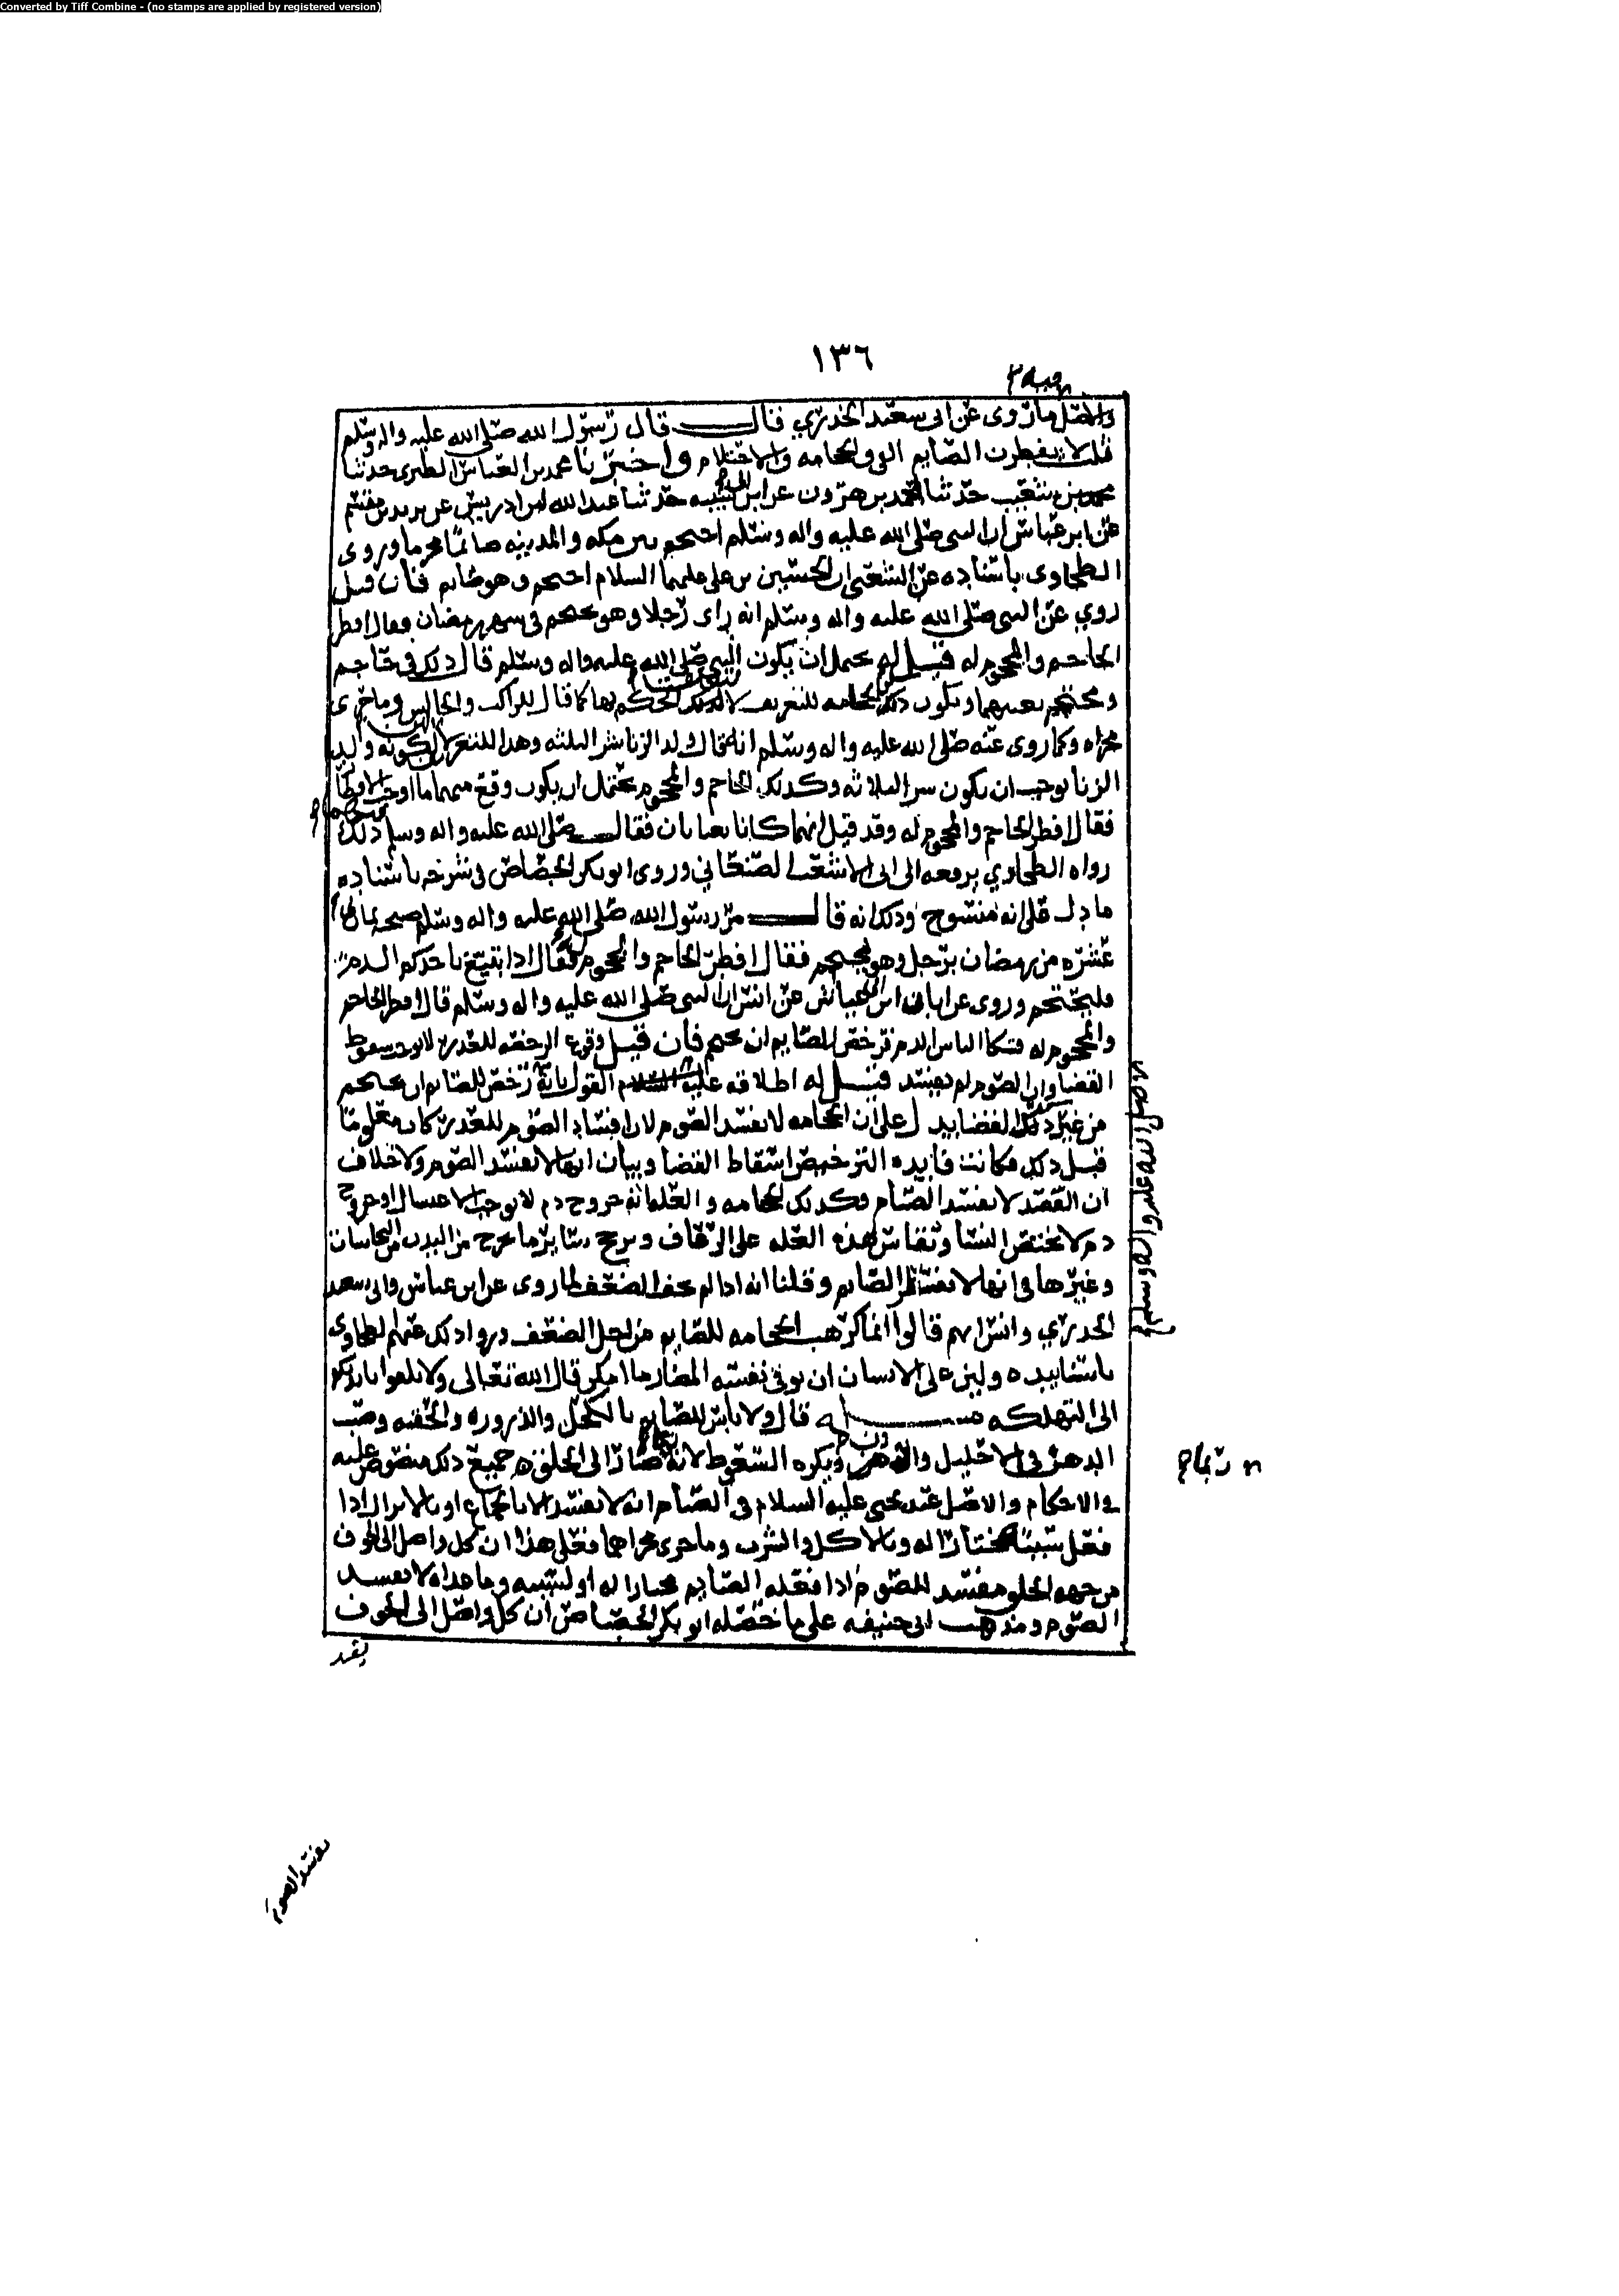 Converted by Tiff Combine - (no stamps are applied by registered version)
١٣٦
والاصل ما روى عن ابى سعيد الخدري قال قال رسول الله صلى الله عليه واله وسلم
ثلاث لا يفطرن الصايم القى والحجامه والاحتلام واخبرنا محمد بن العباس الطبرى حدثنا
محمد بن شعيب حدثنا احمد بن هرون عن ابن ابى شيبه حدثنا عبدالله بن ادريس عن يزيد عن مقسم
عن ابن عباس ان النبى صلى الله عليه واله وسلم احتجم بين مكه والمدينه صائما محرما وروى
الطحاوى باسناده عن الشعبى ان الحسين بن على عليهما السلام احتجم وهو صايم فان قيل
روي عن النبى صلى الله عليه واله وسلم انه راى رجلا وهو يحتجم فى شهر رمضان فقال افطر
الحاجم والمحجوم له قيل له يحتمل ان يكون النبى صلى الله عليه واله وسلم قال ذلك فى حاجم
ومحتجم بعينهما ويكون ذكر الحجامه للتعريف لا لتعلق الحكم بها كما قال للراكب والجالس وما جرى
مجراه وكما روى عنه صلى الله عليه واله وسلم انه قال ولد الزنا شر الثلثه وهذا للتعريف لا لان كونه ولد
الزنا يوجب ان يكون شر الثلاثه وكذلك الحاجم والمحجوم يحتمل ان يكون وقع منهما ما اوجب الافطار
فقال افطر الحاجم والمحجوم له وقد قيل انهما كانا يغتابان فقال صلى الله عليه واله وسلم ذلك
رواه الطحاوي يرفعه الى ابى الاشعث الصنعاني وروى ابو بكر الجصاص فى شرحه باسناده
ما دل على انه منسوخ وذلك انه قال مر رسول الله صلى الله عليه واله وسلم صبحه ثمانى
عشره من رمضان برجل وهو يحتجم فقال افطر الحاجم والمحجوم فقال اذا تبيغ باحدكم الدم
فليحتجم وروى عن ابان ابن ابى عياش عن انس ان النبى صلى الله عليه واله وسلم قال افطر الحاجم
والمحجوم له فشكا الناس الدم فرخص للصايم ان يحتجم فان قيل وقوع الرخصه للعذر لا يوجب سقوط
القضا وان الصوم لم يفسد قيل له اطلاقه القول بانه رخص للصايم ان يحتجم
من غير ذكر القضا يدل على ان الحجامه لا تفسد الصوم لان افساد الصوم للعذر كان معلوما
قبل ذلك فكانت فايده الترخيص اسقاط القضا وبيان انها لا تفسد الصوم ولا خلاف
ان الفصد لا يفسد الصيام فكذلك الحجامه والعله انه خروج دم لا يوجب الاغتسال او خروج
دم لا يختص النسا ونقاس بهذه العله على الرعاف وجرح وسائر ما يخرج من البدن من النجاسات
وغيرها فى انها لا تفسد الصايم وقلنا انه اذا لم يخف الضعف لما روى عن ابن عباس وابى سعيد
الخدري وانس انهم قالوا انما كرهت الحجامه للصايم من اجل الضعف وروا ذلك عنهم الطحاوى
باسانيده وليس على الانسان ان يوقى نفسه المضار ما امكن قال الله تعالى ولا تلقوا بايديكم
الى التهلكه مساله قال ولا باس للصايم بالكحل والذروره والحقنه وصب
الدهن فى الاحليل والاذن ويكره السعوط لانه صار الى الحلق جميع ذلك منصوص عليه
فى الاحكام والاصل عند يحيى عليه السلام فى الصيام انه لا يفسد الا بالجماع او بالانزال اذا
فعل سببه مختارا له وبالاكل والشرب وما جرى مجراهما فعلى هذا ان كل واصل الى الجوف
من جهه الحلق مفسد للصوم اذا فعله الصايم مختارا له او لسببه وما عداه لا يفسد
الصوم ومذهب ابى حنيفه على ما حصله ابو بكر الجصاص ان كل واصل الى الجوف
صلى الله عليه واله وسلم
يفسد الصوم